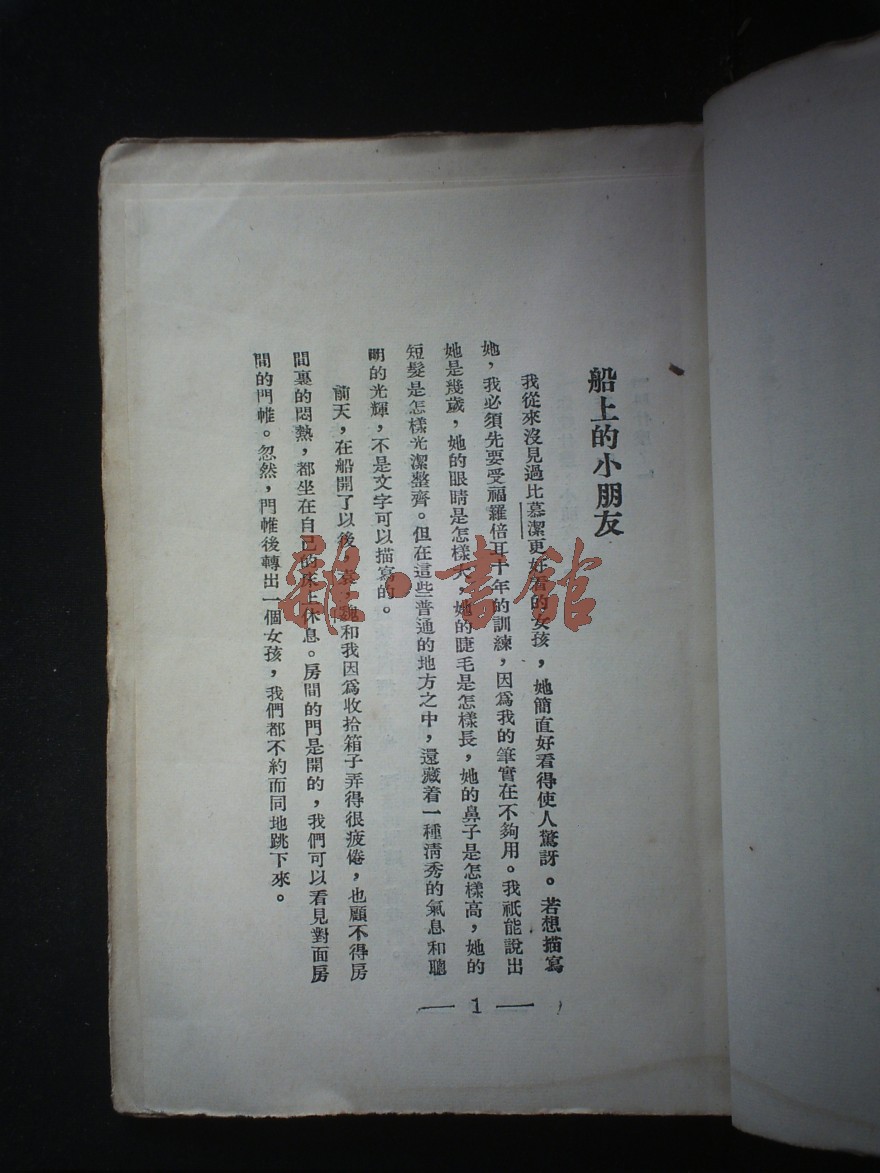 船上的小朋友
我從來沒見過比慕潔更好看的女孩，她簡直好看得使人驚訝。若想描寫
她，我必須先要受福羅倍耳十年的訓練，因爲我的筆實在不夠用。我祇能說出
她是幾歲，她的眼睛是怎樣大，她的睫毛是怎樣長，她的鼻子是怎樣高，她的
短髮是怎樣光潔整齊。但在這些普通的地方之中，還藏着一種清秀的氣息和聰
明的光輝，不是文字可以描寫的。
前天，在船開了以後，蔡，魏和我因爲收拾箱子弄得很疲倦，也顧不得房
間裏的悶熱，都坐在自己的床上休息。房間的門是開的，我們可以看見對面房
間的門帷。忽然，門帷後轉出一個女孩，我們都不約而同地跳下來。
— 1 —
雜·書館